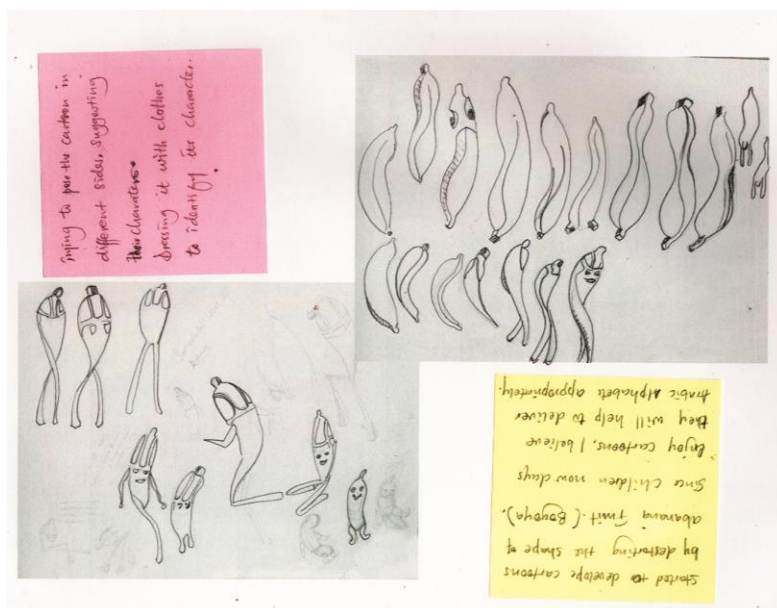 Trying to pose the cartoon in
different sides. suggesting
their characters.
Dressing it with clothes
to identify its character.
Started to develope cartoons
by destorting the shape of
abanana fruit. (Bogoya).
Since children now days
enjoy cartoons, I believe
they will help to deliver
Arabic alphabets appropriately.